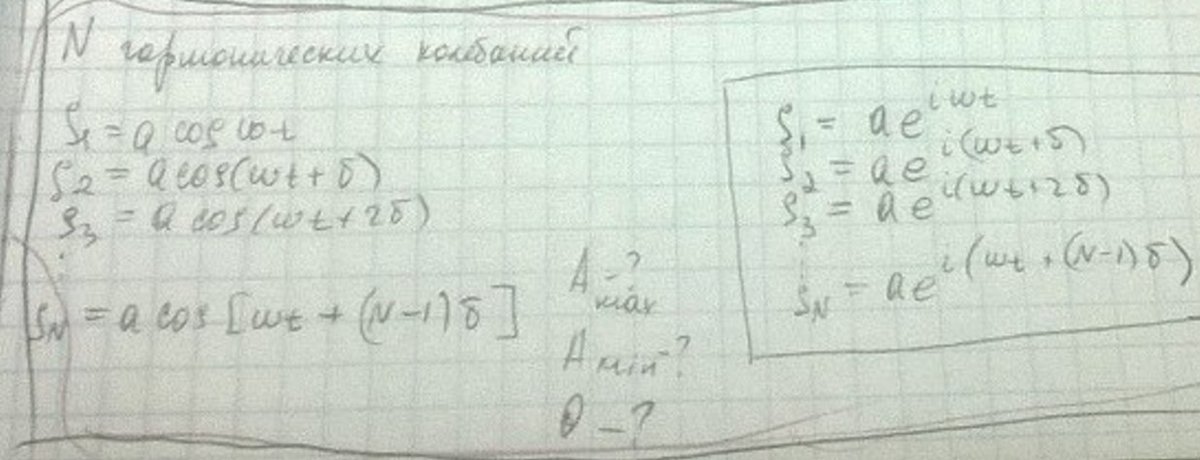 N гармонических колебаний
ξ₁ = a cos ωt
ξ₂ = a cos(ωt + δ)
ξ₃ = a cos(ωt + 2δ)
⋮
ξN = a cos [ωt + (N-1)δ]
Amax - ?
Amin - ?
θ - ?
ξ₁ = ae^{iωt}
ξ₂ = ae^{i(ωt+δ)}
ξ₃ = ae^{i(ωt+2δ)}
⋮
ξN = ae^{i(ωt+(N-1)δ)}